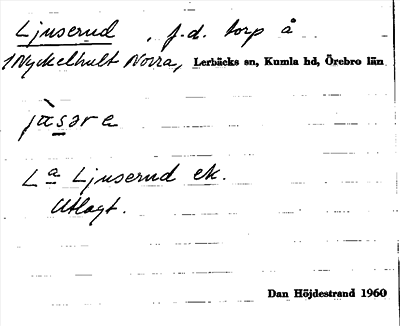 Ljuserud, f.d. torp å
Nyckelhult Norra, Lerbäcks sn, Kumla hd, Örebro län
La Ljuserud ek.
Utlagt.
Dan Höjdestrand 1960